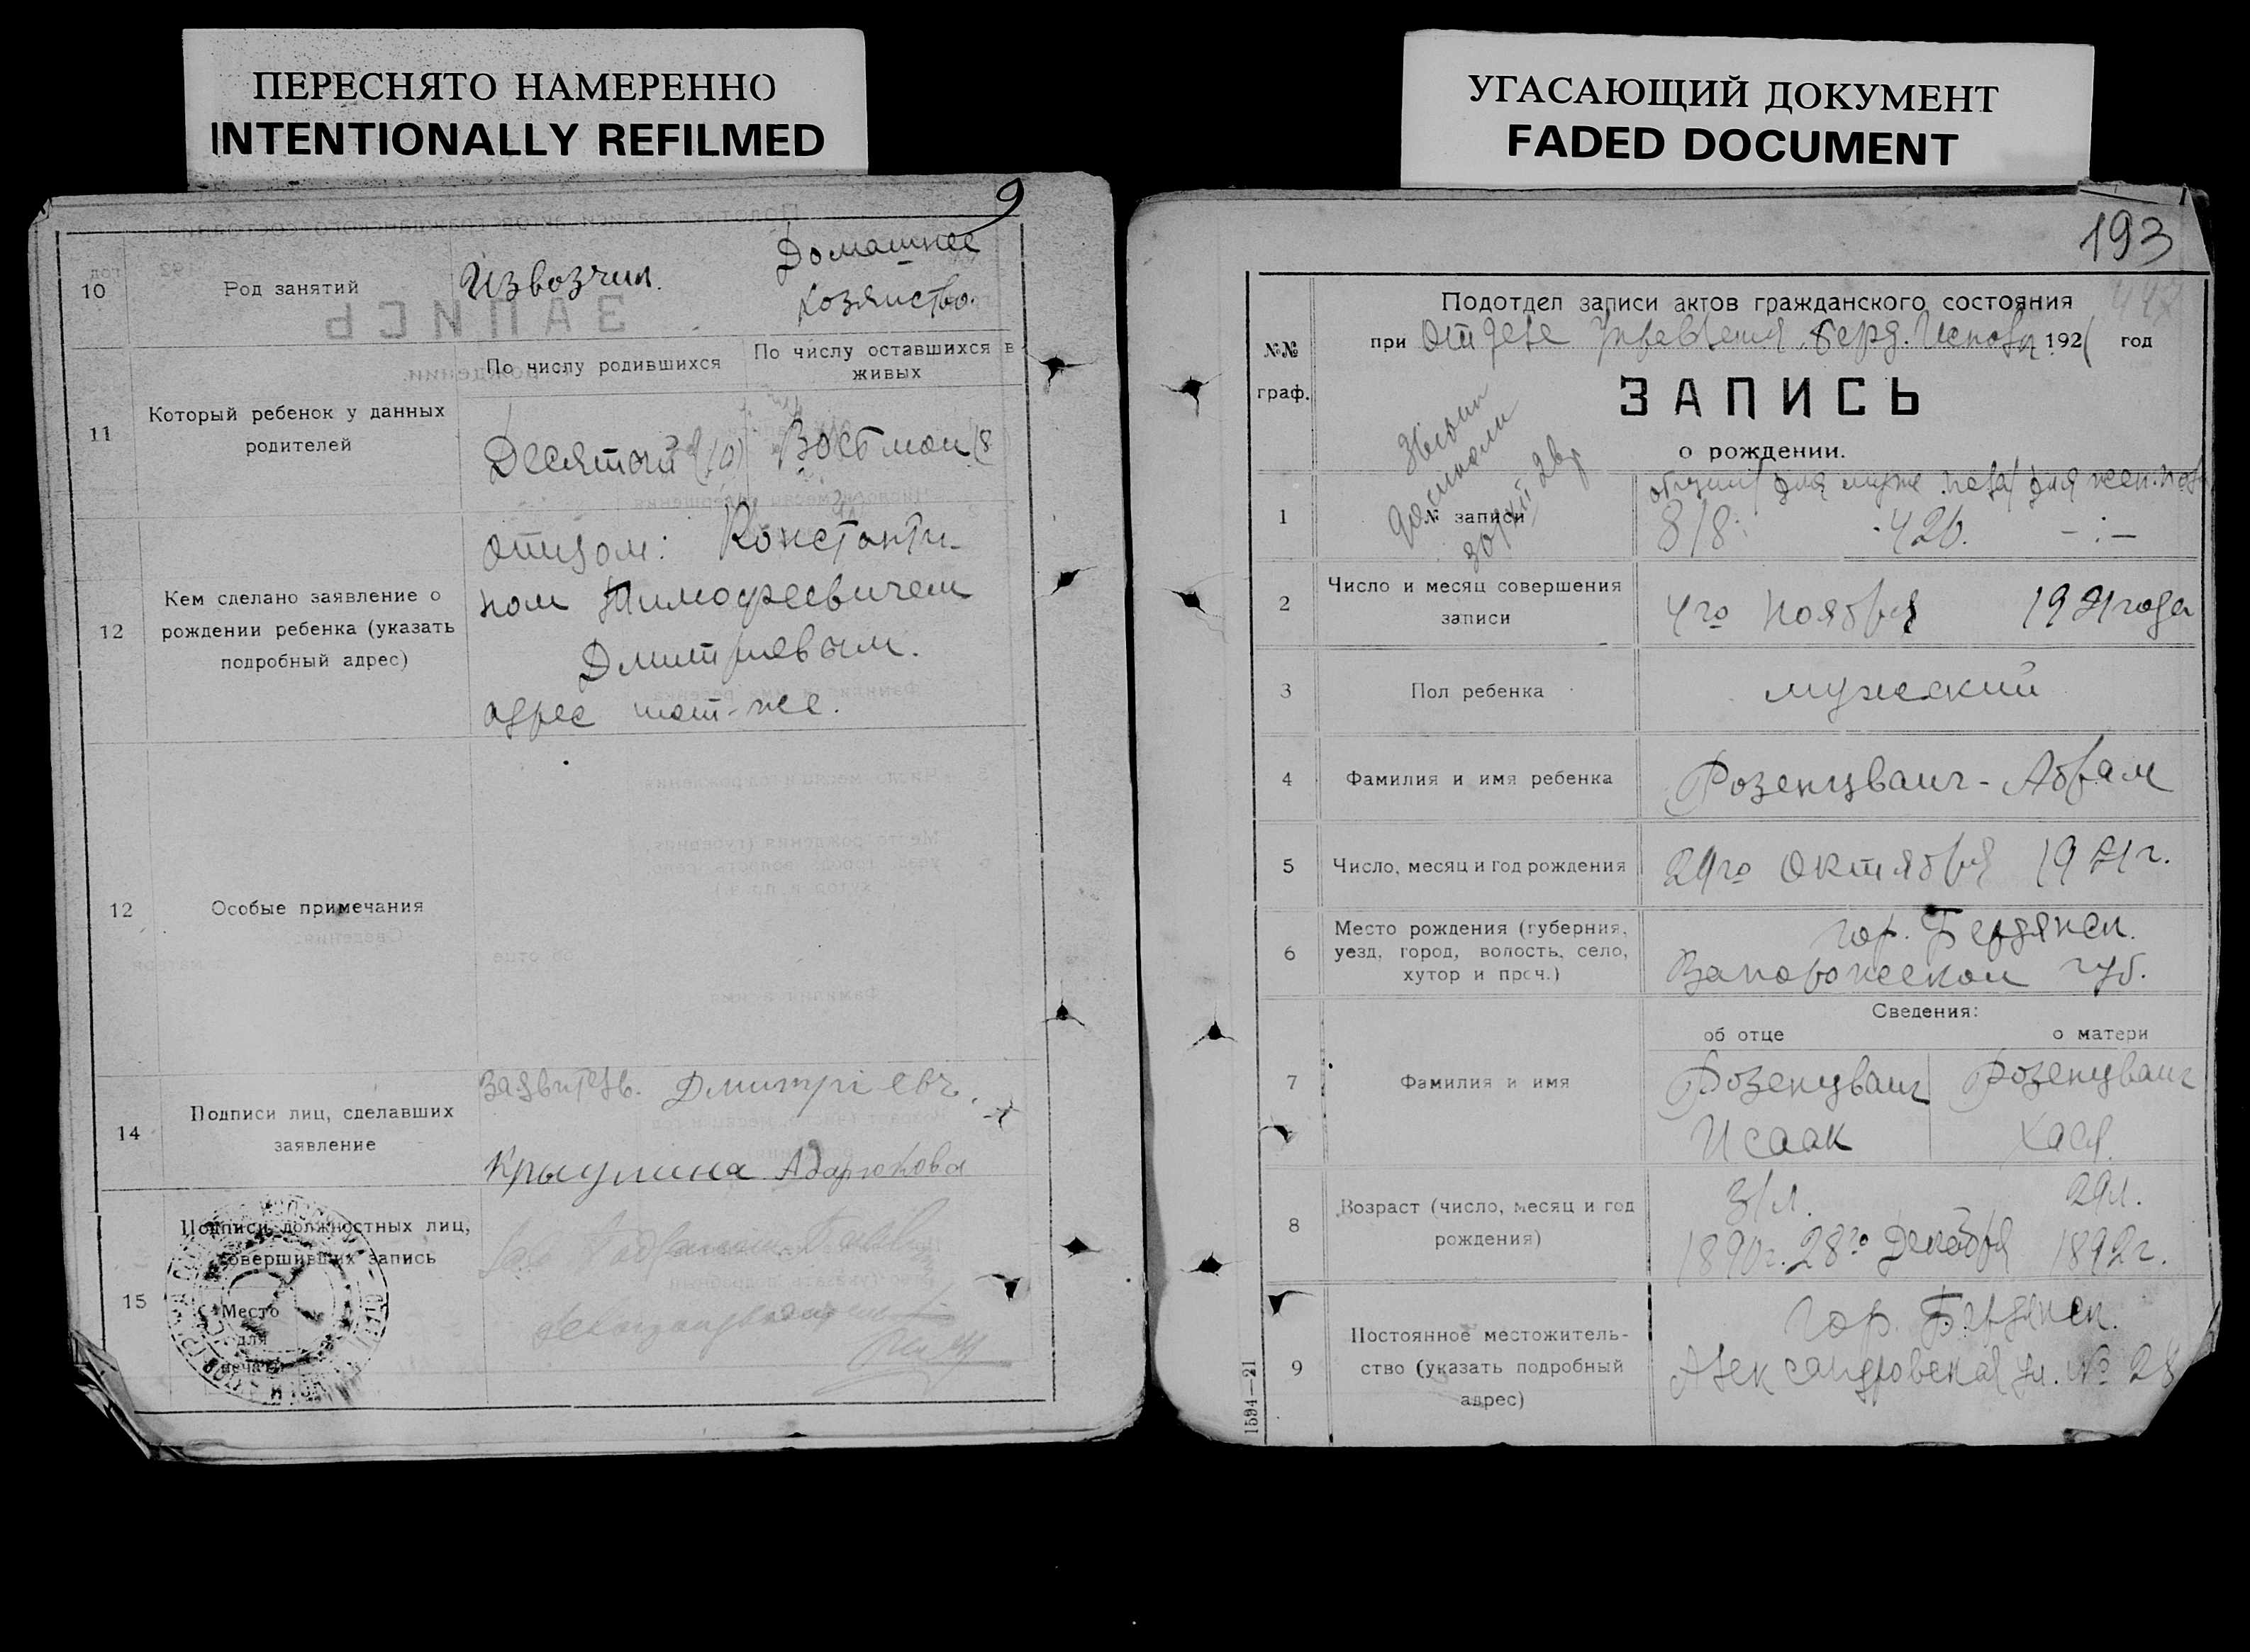 ПЕРЕСНЯТО НАМЕРЕННО
INTENTIONALLY REFILMED
9
10
Род занятий
Извозчик.
Домашнее
хозяйство.
11
Который ребенок у данных
родителей
По числу родившихся
По числу оставшихся в
живых
Десятый (10)
Восьмой (8
12
Кем сделано заявление о
рождении ребенка (указать
подробный адрес)
отцом: Константи-
ном Тимофеевичем
Дмитриевым.
адрес тот-же.
12
Особые примечания
14
Подписи лиц, сделавших
заявление
Заявитель. Дмитрiевъ.
15
Подписи должностных лиц,
совершивших запись
Место
для
печати
УГАСАЮЩИЙ ДОКУМЕНТ
FADED DOCUMENT
193
Подотдел записи актов гражданского состояния
при Отделе Управления Берд. Исполк 1921 год
№№
граф.
ЗАПИСЬ
о рождении.
1
№ записи
общий для муж. пола для жен. пола
818. 426. - : -
2
Число и месяц совершения
записи
4го Ноября 1921 года
3
Пол ребенка
мужеский
4
Фамилия и имя ребенка
Розенцвайг - Абрам
5
Число, месяц и год рождения
29го Октября 1921 г.
6
Место рождения (губерния,
уезд, город, волость, село,
хутор и проч.)
гор. Бердянск.
Запорожской губ.
Сведения:
об отце
о матери
7
Фамилия и имя
Розенцвайг
Исаак
Розенцвайг
Хася.
8
Возраст (число, месяц и год
рождения)
31 л.
29 л.
1890 г. 28го Декабря 1892 г.
9
Постоянное местожитель-
ство (указать подробный
адрес)
гор. Бердянск.
Александровская ул. № 28
1594—21